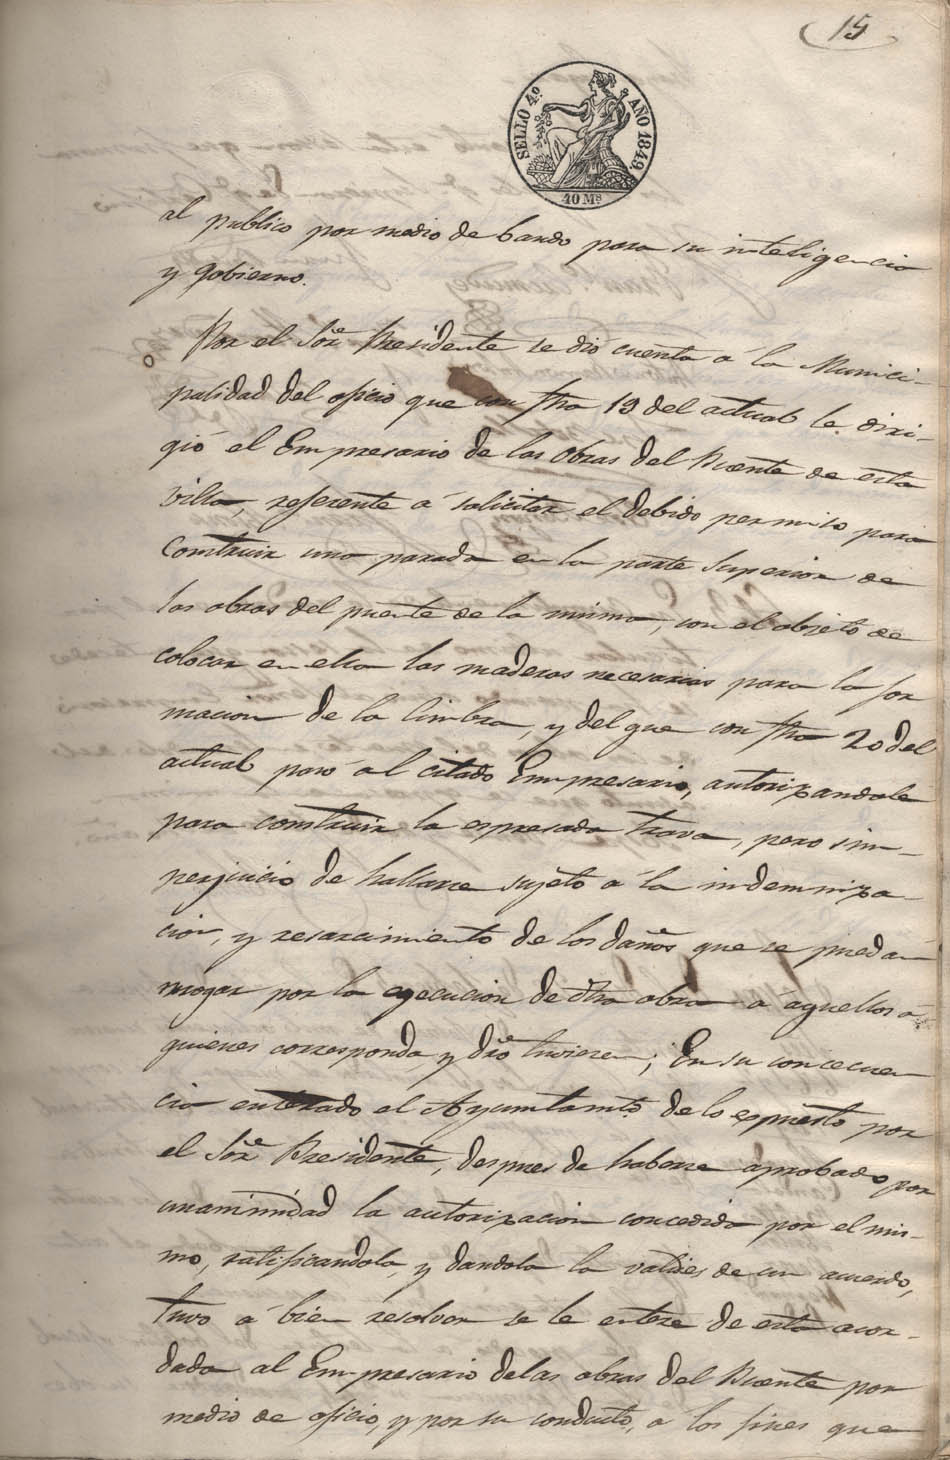 15
SELLO 4º. AÑO 1849.
40 Ms
al publico por medio de bando para su inteligencia
y gobierno.
Por el Sor. Presidente se dió cuenta á la Munici-
palidad del oficio que con fha 19 del actual le diri-
gió el Empresario de las Obras del Puente de esta
villa, referente á solicitar el debido permiso para
construir una parada en la parte superior de
las obras del puente de la misma, con el objeto de
colocar en ella las maderas necesarias para la for
macion de la Cimbra, y del que con fha 20 del
actual pasó al citado Empresario, autorizandole
para construir la espresada trava, pero sin
perjuicio de hallarse sujeto á la indemniza-
cion, y resarcimiento de los daños que se puedan
irrogar por la egecucion de dha obra á aquellos á
quienes corresponda y dro tuvieren; En su concecuen
cia enterado el Ayuntamto. de lo espuesto por
el Sor. Presidente, despues de haberse aprobado por
unanimidad la autorizacion concedida por el mis-
mo, ratificandola, y dandola la valides de un acuerdo,
tuvo á bien resolver se le entere de esta acor-
dada al Empresario de las obras del Puente por
medio de oficio, y por su conducto, á los fines que